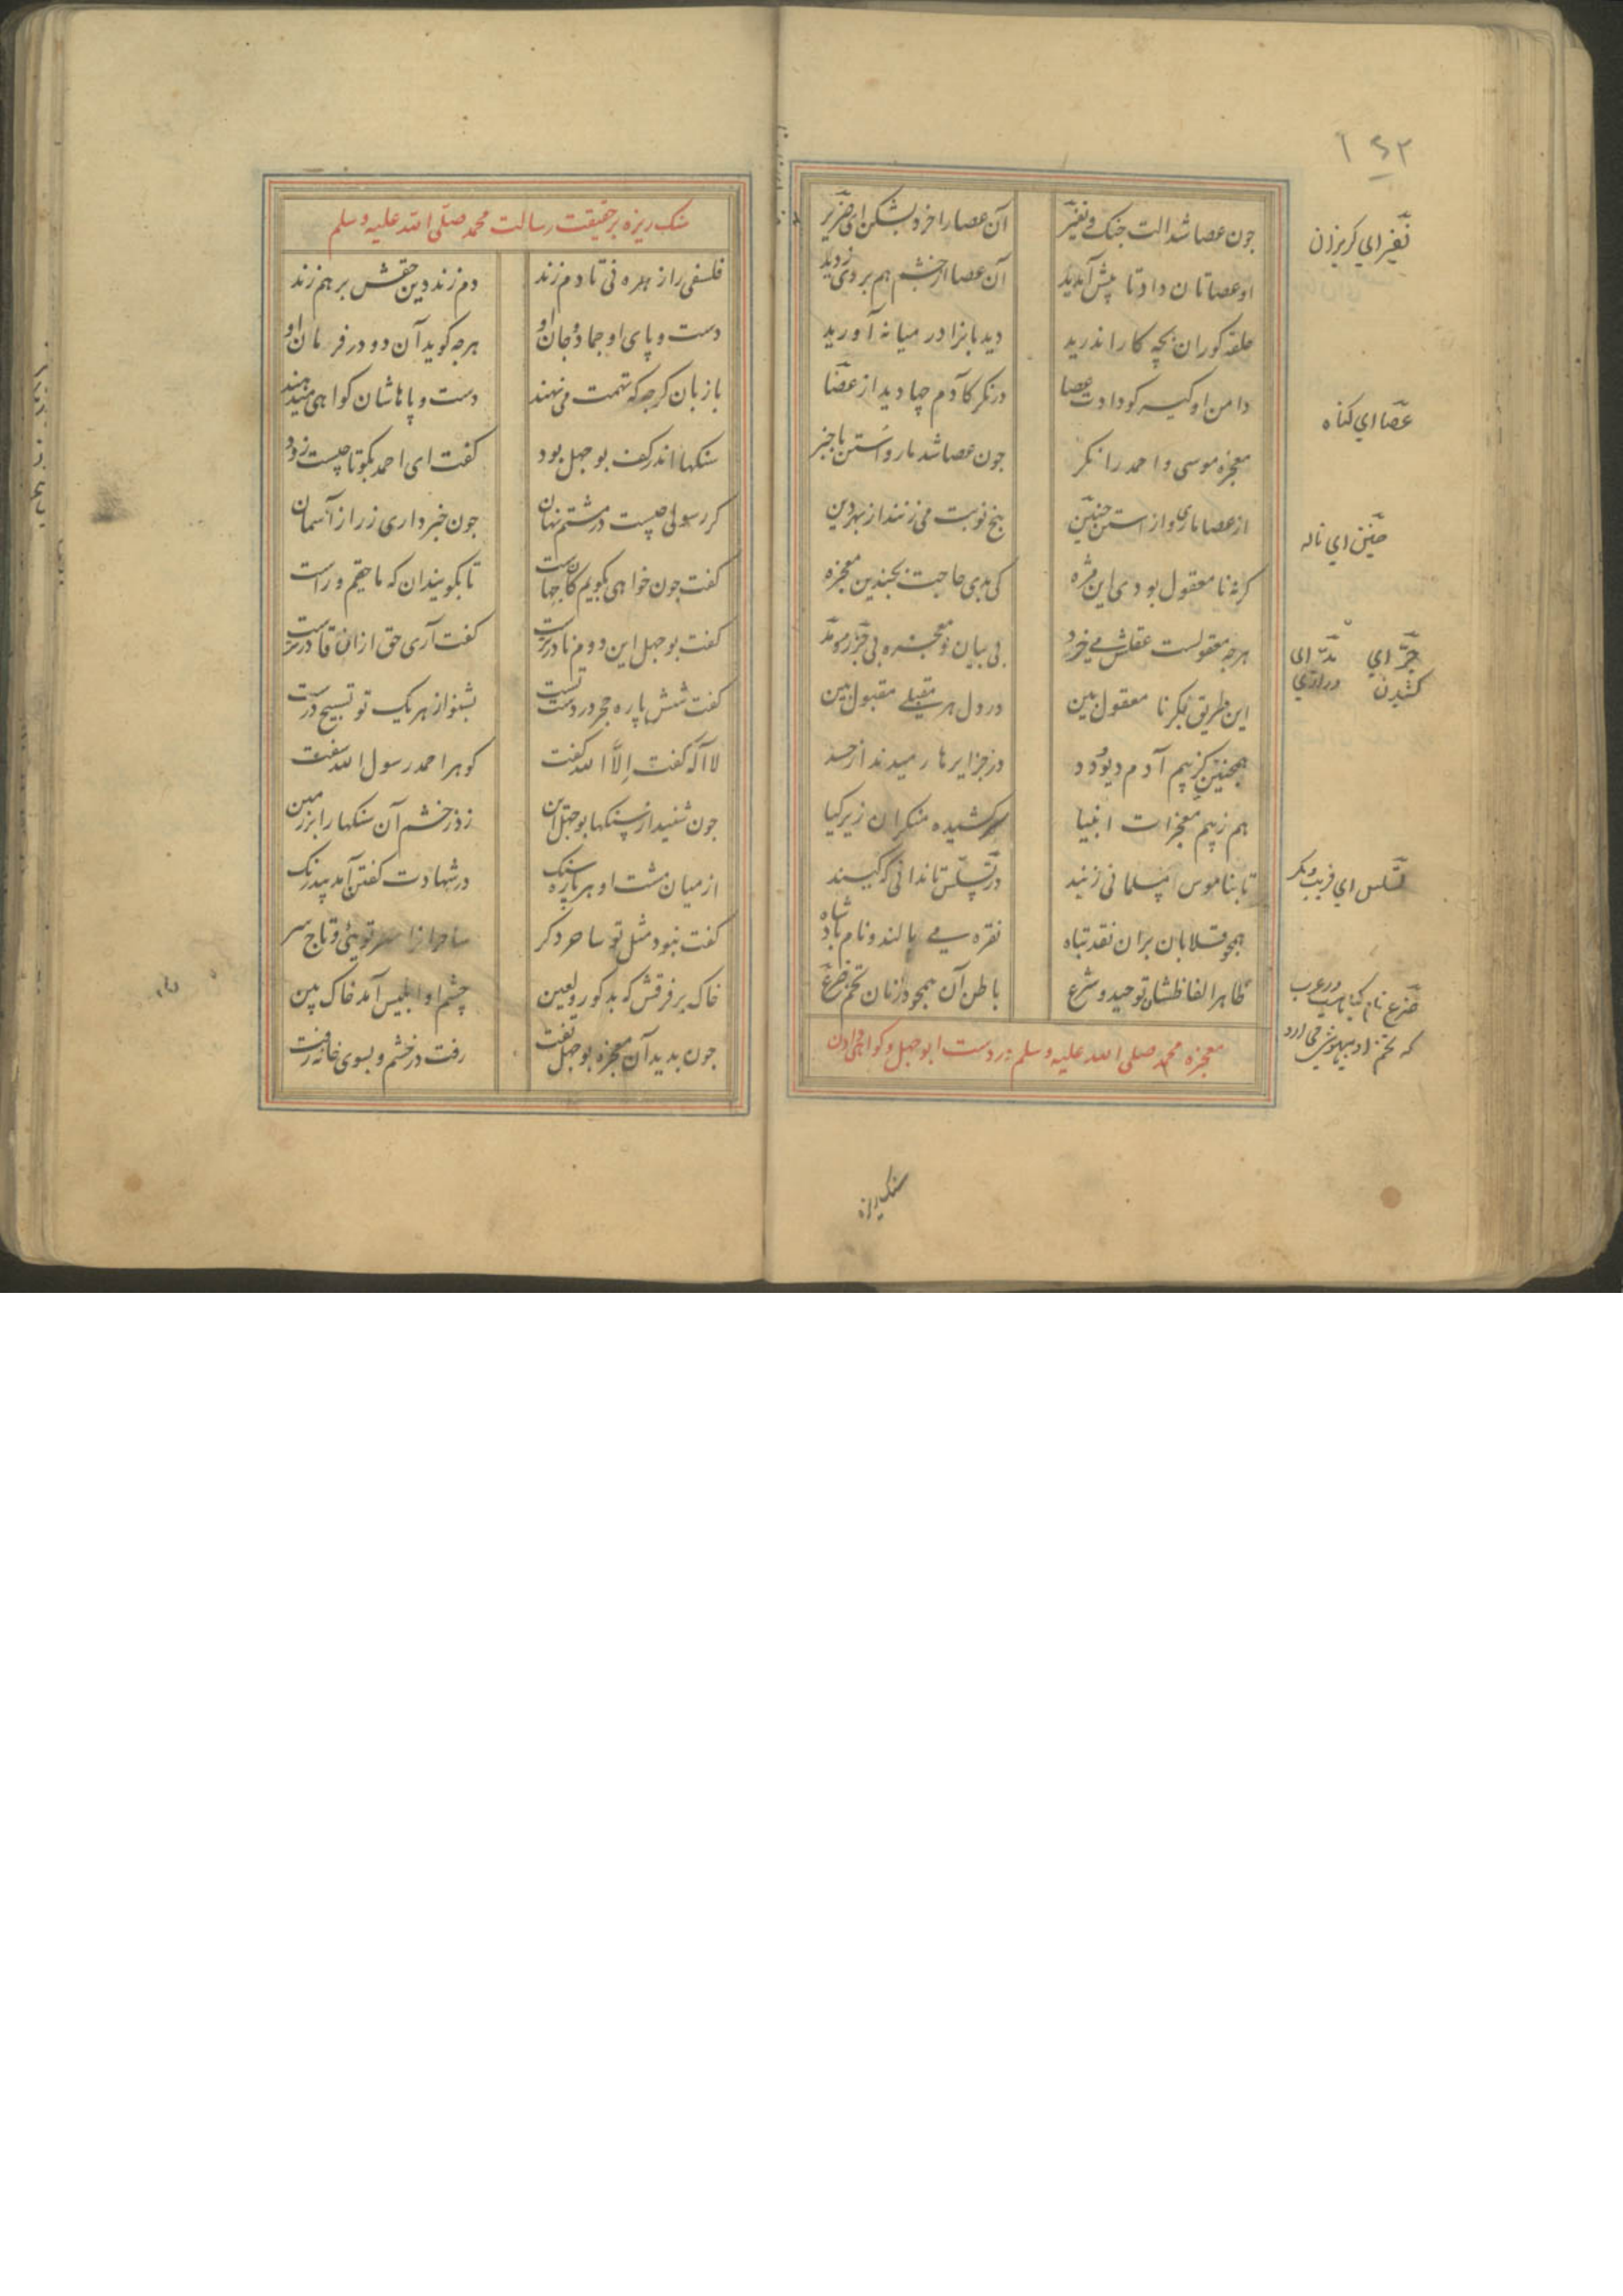 ۱۴۲
جون عصا شد الت جنک و نفیر
آن عصا را خرد بشکن ای ضریر
او عصاتان داد تا پیش آمدید
آن عصا از خشم هم بر وی زدید
حلقه کوران بچه کار اندرید
دیدبانرا در میانه آورید
دامن او کیر کو دادت عصا
درنکر کآدم جها دید از عصا
معجزه موسی و احمد را نکر
جون عصا شد مار و استن با خبر
از عصا ماری و از استن حنین
پنج نوبت می زنند از بهر دین
کرنه نا معقول بودی این مزه
کی بدی حاجت بجندین معجزه
هرجه معقولست عقلش می خورد
بی بیان معجزه بی جر و مد
این طریق بکر نا معقول بین
در دل هر مقبلی مقبول بین
همجنین کز بیم آدم دیو و دد
در جزایرها رمیدند از حسد
هم ز بیم معجزات انبیا
سر کشیده منکران زیر کیا
تا بناموس مسلمانی زیند
در تسلس تا ندانی که کیند
همجو قلابان بران نقد تباه
نقره می مالند و نام پادشاه
ظاهر الفاظشان توحید و شرع
باطن آن همجو در نان تخم ضرع
معجزه محمد صلی الله علیه و سلم در دست ابوجهل و کواهی دادن
نفیر ای کریزان
عصا ای کناه
حنین ای ناله
جر ای کشیدن
مد ای درازی
تسلس ای فریب و مکر
ضرع نام کیاهیست در عرب
که تخم او بیهوشی می آرد
سنک ریزه
سنک ریزه بر حقیقت رسالت محمد صلی الله علیه و سلم
فلسفی را زهره نی تا دم زند
دم زند دین حقش بر هم زند
دست و پای او جماد و جان او
هرجه کوید آن دو در فرمان او
با زبان کرجه که تهمت می نهند
دست و پاهاشان کواهی میدهند
سنکها اندر کف بوجهل بود
کفت ای احمد بکو تا جیست زود
کر رسولی جیست در مشتم نهان
جون خبر داری ز راز آسمان
کفت جون خواهی بکویم کان جهاست
تا بکویند آن که ما حقیم و راست
کفت بوجهل این دوم نادرترست
کفت آری حق از آن قادرترست
کفت شش پاره حجر در دست تست
بشنو از هر یک تو تسبیح درست
لا اله کفت الا الله کفت
کوهر احمد رسول الله سفت
جون شنید از سنکها بوجهل این
زد ز خشم آن سنکها را بر زمین
از میان مشت او هر پاره سنک
در شهادت کفتن آمد بیدرنک
کفت نبود مثل تو ساحر دکر
ساحرانرا سر تویی و تاج سر
خاک بر فرقش که بد کور و لعین
چشم او ابلیس آمد خاک بین
جون بدید آن معجزه بوجهل تفت
رفت در خشم و بسوی خانه رفت